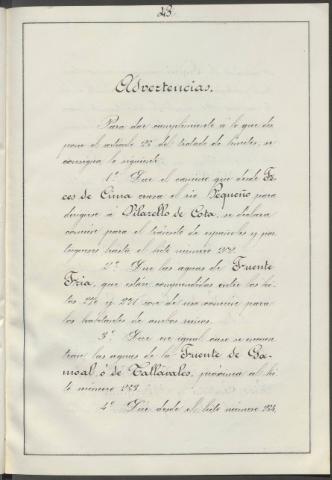 23
Advertencias.
Para dar cumplimiento á lo que dis
pone el artículo 25 del tratado de límites, se
consigna lo siguiente:
1ª Que el camino que desde Fe
ces de Cima cruza el río Pequeño para
dirigirse á Vilarello de Cota, se declara
común para el tránsito de españoles y por
tugueses hasta el hito número
2ª Que las aguas de Fuente
Fria, que están comprendidas entre los hi
tos y 271 son de uso común para
los habitantes de ambos reinos.
3ª Que en igual caso se encuen
tran las aguas de la Fuente de Ga
moal ó de Tallavales, próxima al hi
to número
4ª Que desde el hito número